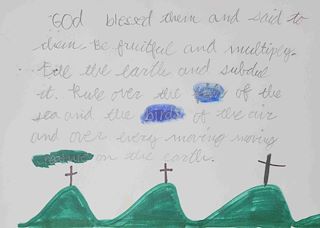 God blessed them and said to
them Be fruitful and multiply.
Fill the earth and subdue
it. Rule over the of the
sea and the birds of the air
and over every moving moving
on the earth.